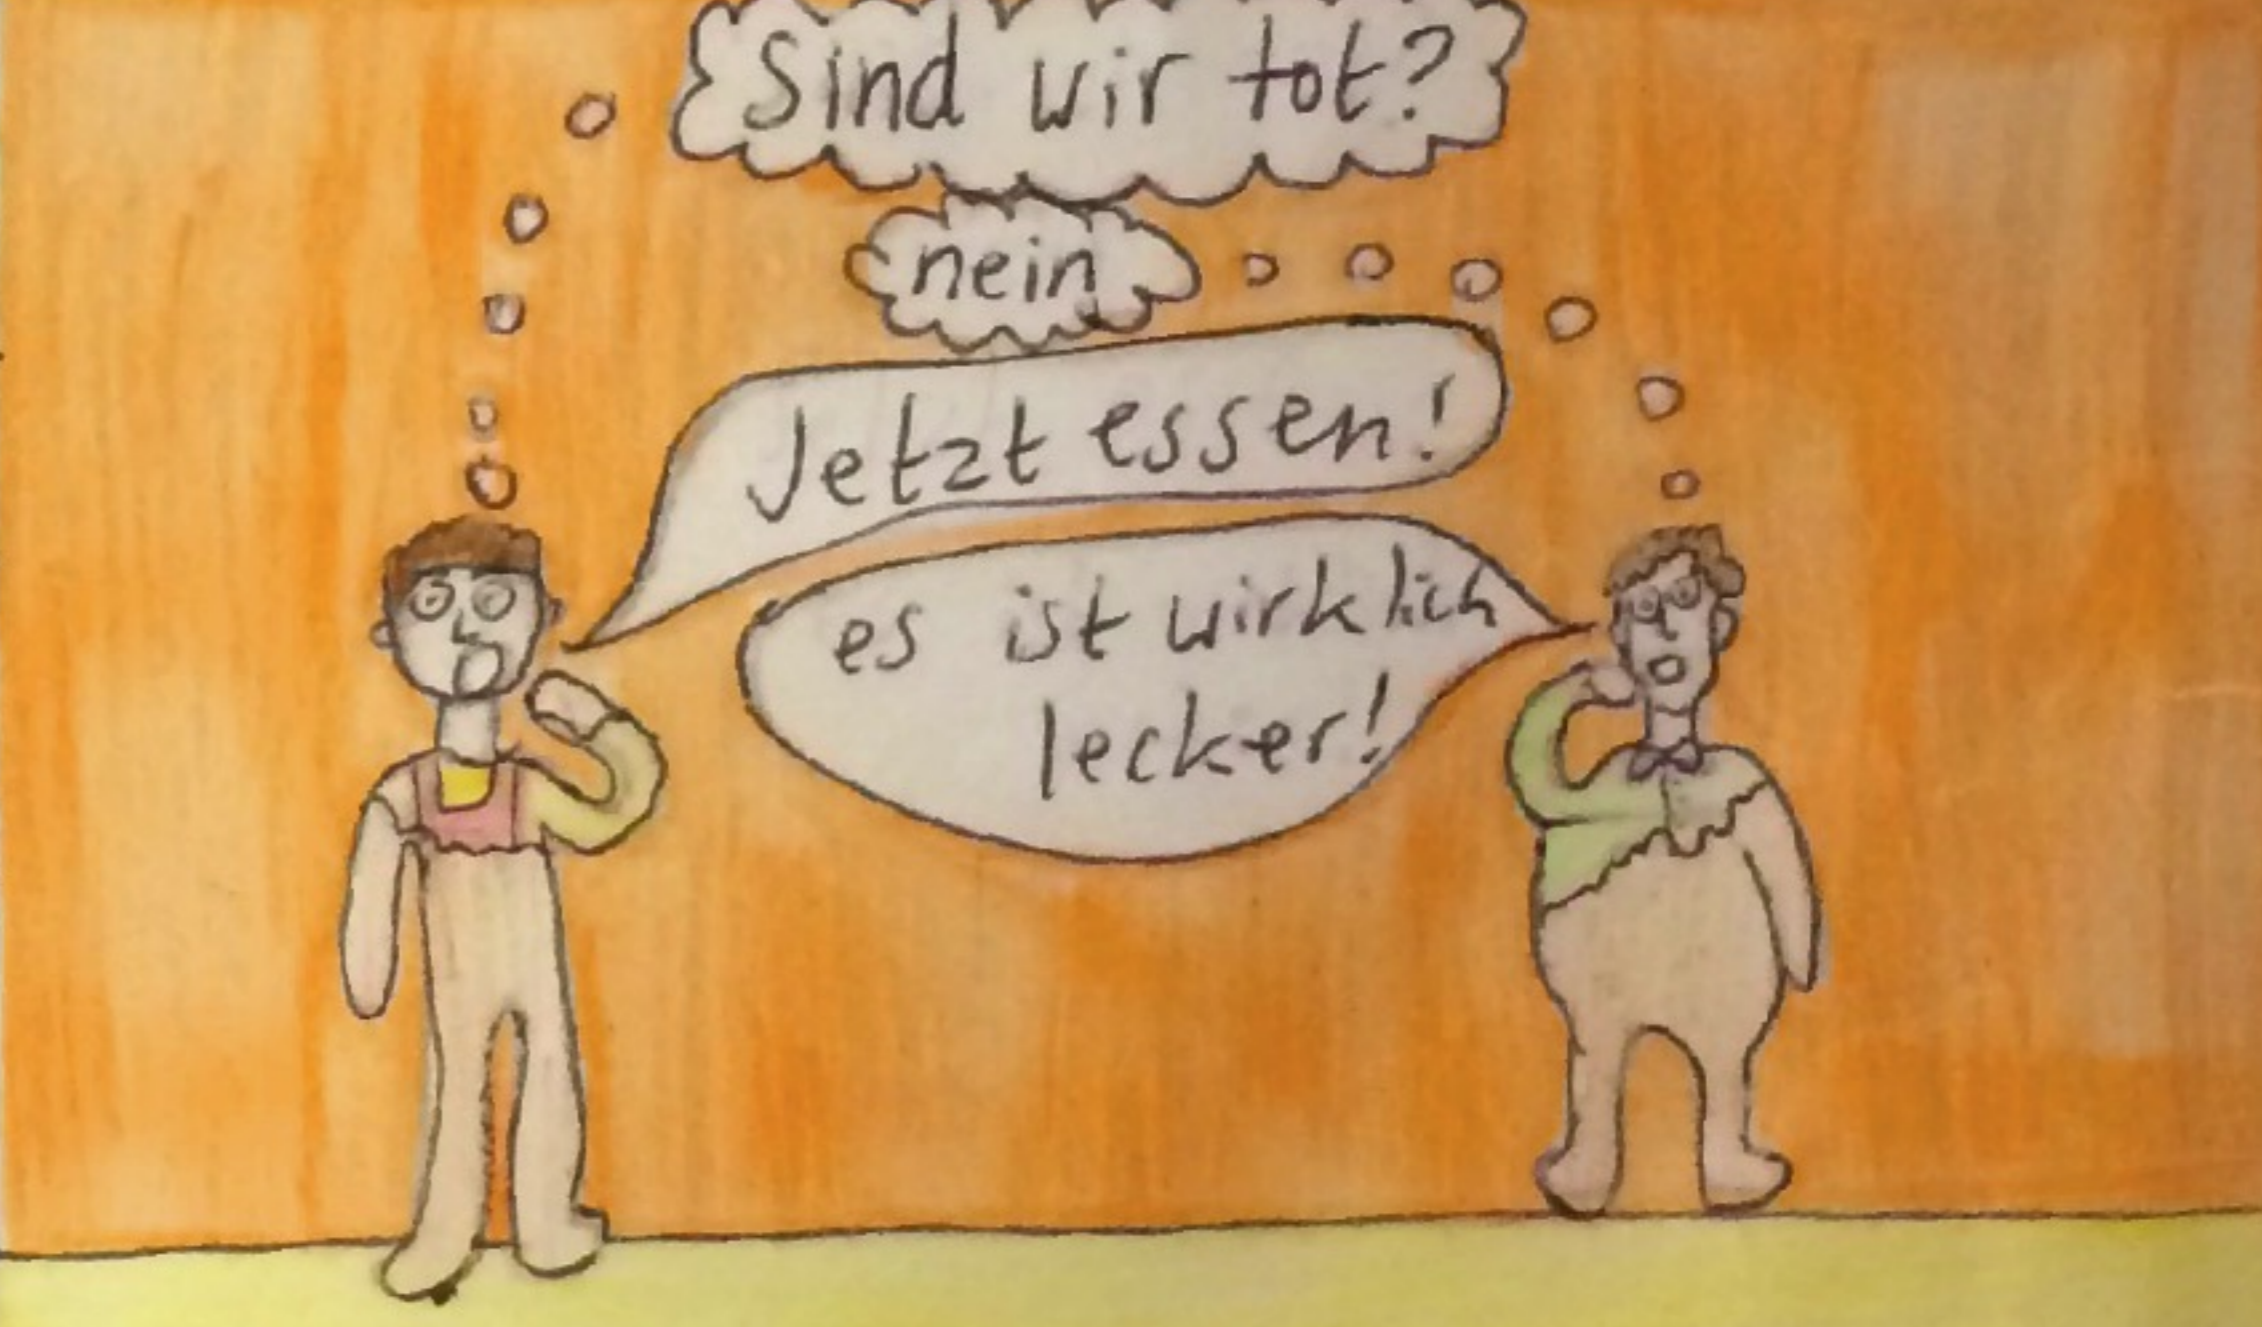 Sind wir tot?
nein
Jetzt essen!
es ist wirklich
lecker!